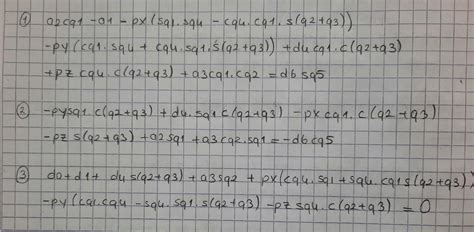 ① a2cq1 - a1 - px(sq1.sq4 - cq4.cq1.s(q2+q3))
-py(cq1.sq4 + cq4.sq1.s(q2+q3)) + d4cq1.c(q2+q3)
+pzcq4.c(q2+q3) + a3cq1.cq2 = d6sq5
② -pysq1.c(q2+q3) + d4.sq1c(q2+q3) - pxcq1.c(q2+q3)
-pzs(q2+q3) + a2sq1 + a3cq2.sq1 = -d6cq5
③ d0+d1+ d4s(q2+q3) + a3sq2 + px(cq4.sq1 + sq4.cq1s(q2+q3))
-py(cq1.cq4 - sq4.sq1.s(q2+q3) - pzsq4.c(q2+q3) = 0